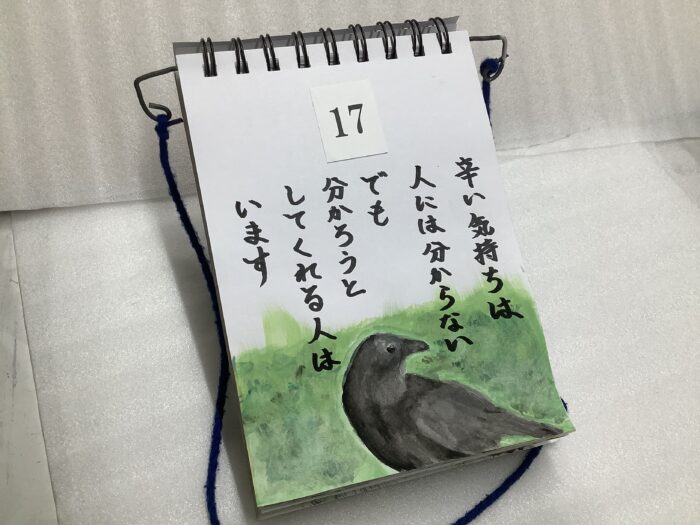 17
辛い気持ちは
人には分からない
でも
分かろうと
してくれる人は
います